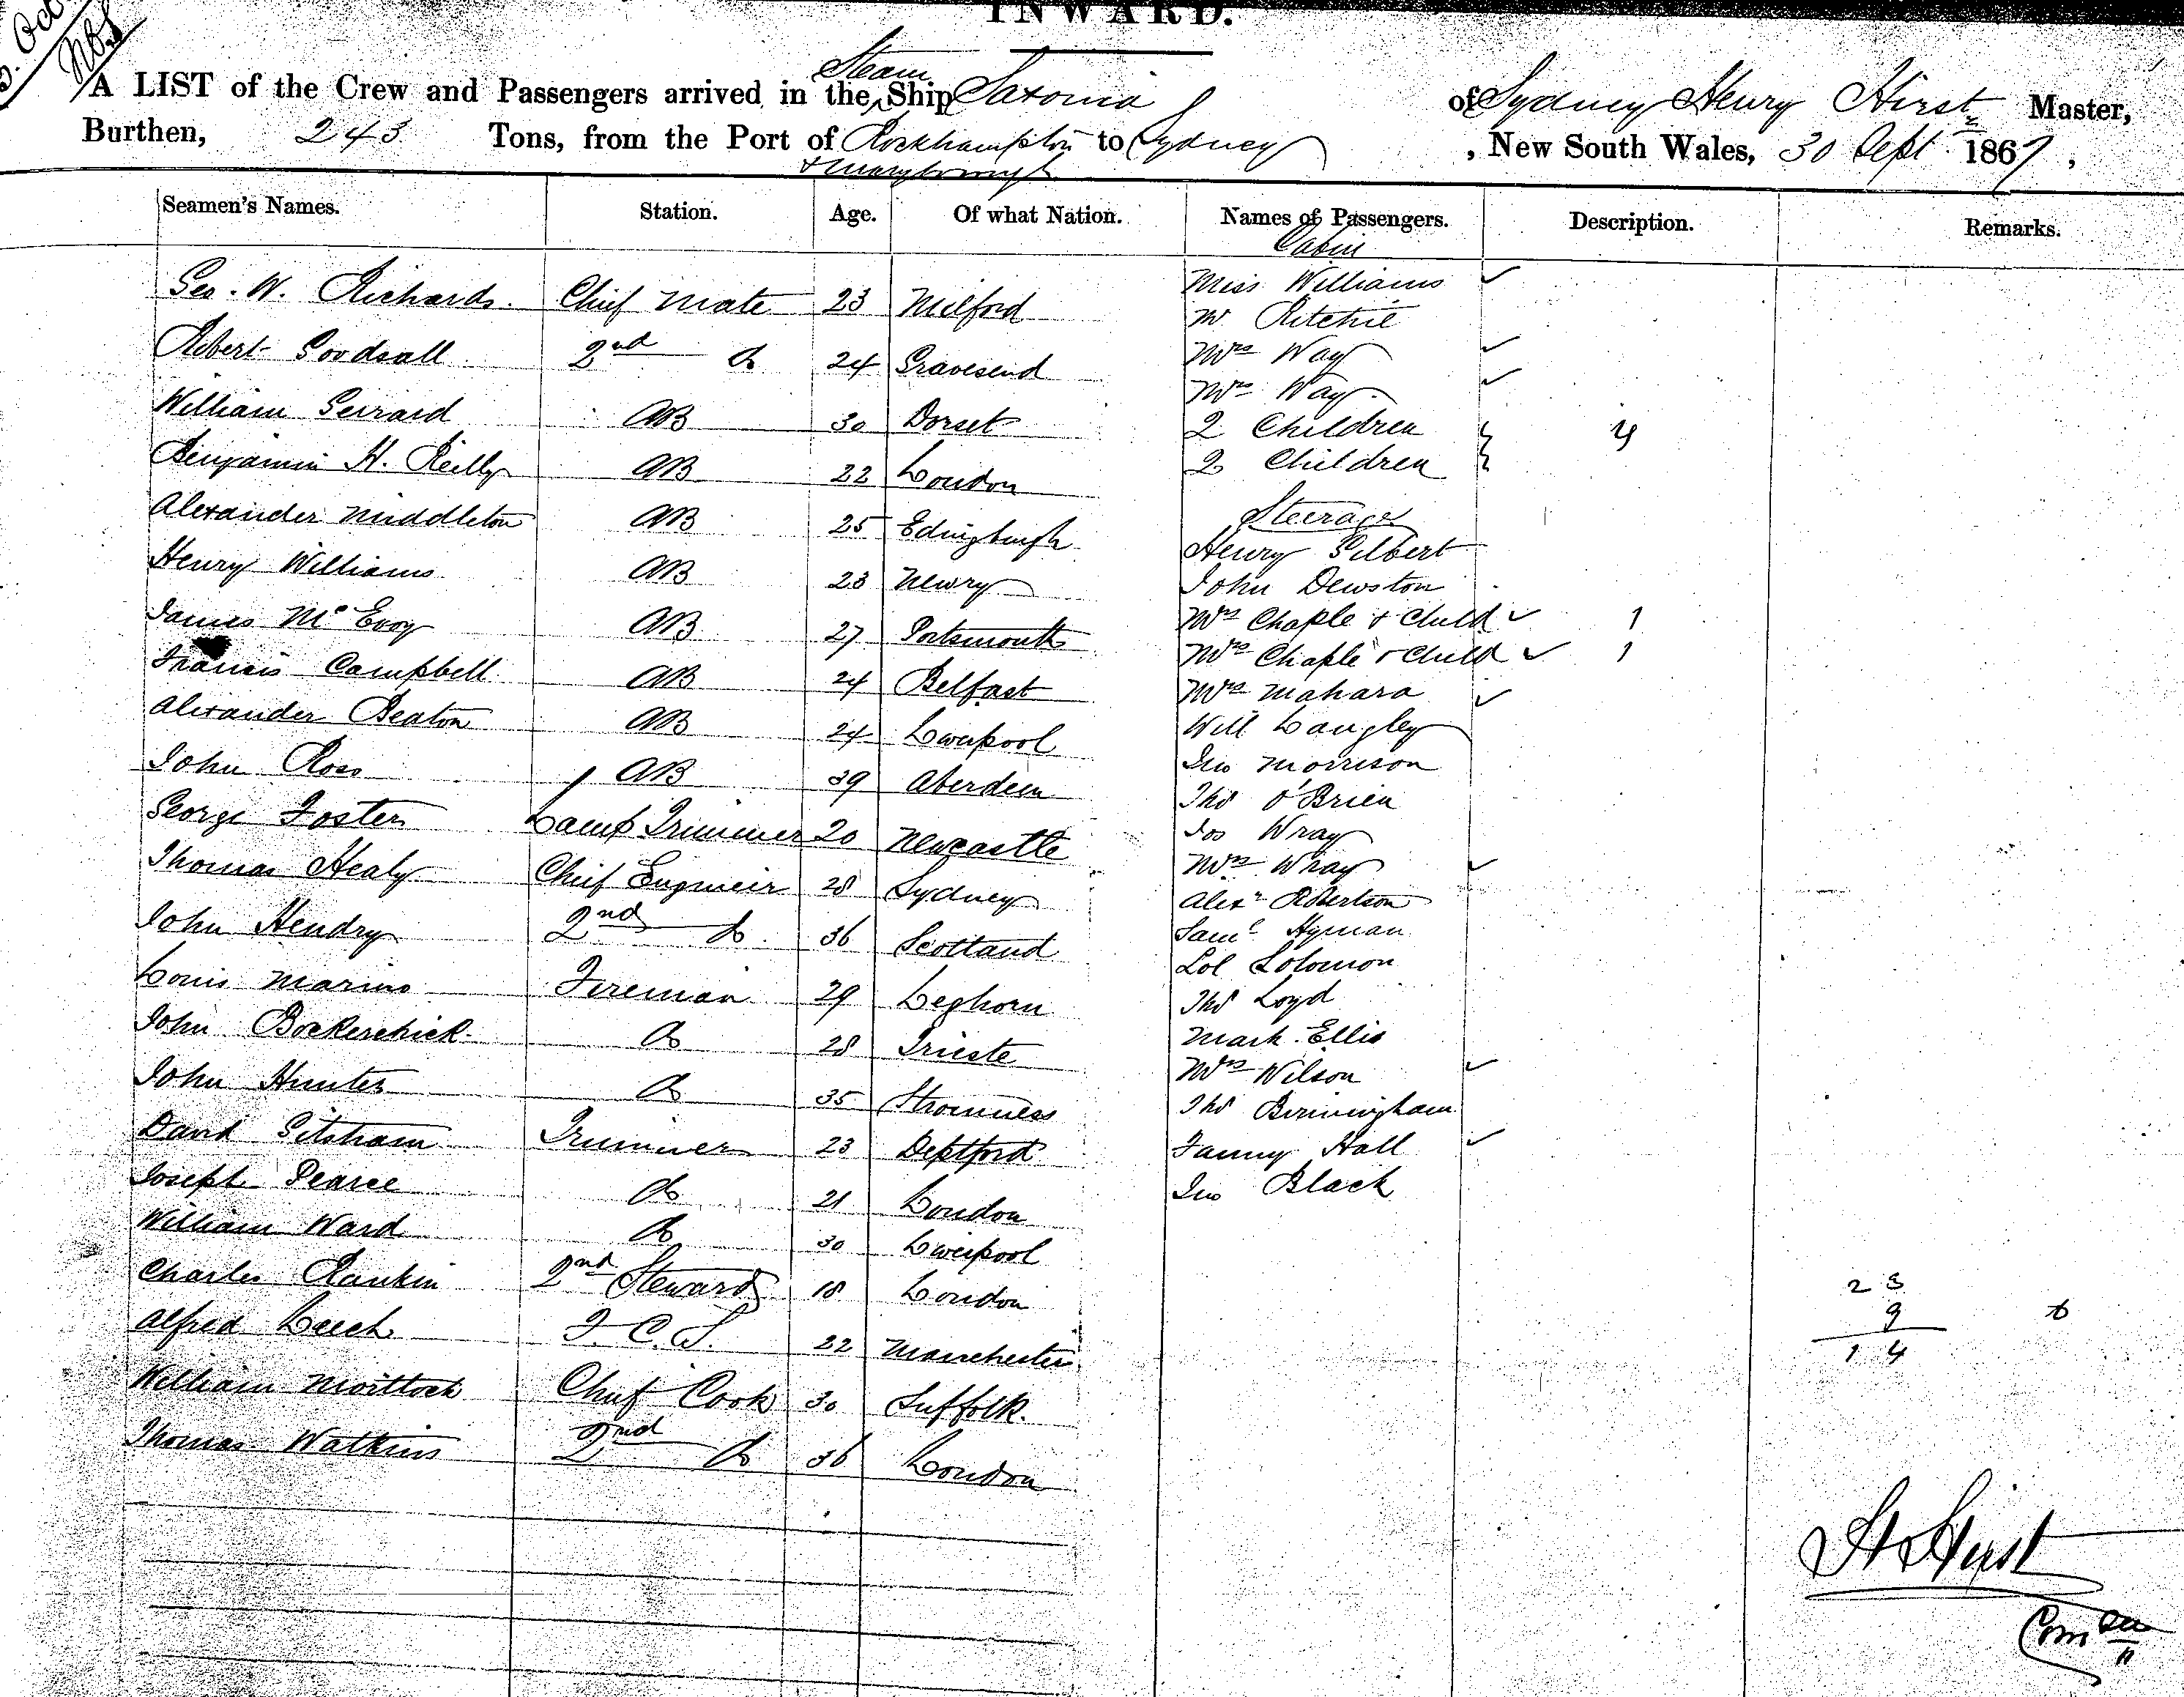 INWARD.
Oct
A LIST of the Crew and Passengers arrived in the Steam Ship Saxonia of Sydney Henry Hirst Master,
Burthen, 243 Tons, from the Port of Rockhampton & Maryborough to Sydney, New South Wales, 30 Sept 1867,
Seamen's Names. Station. Age. Of what Nation. Names of Passengers. Description. Remarks.
Geo. W. Richards. Chief Mate 23 Milford
Robert Goodsall 2nd Do 24 Gravesend
William Gerrard AB 30 Dorset
Benjamin H. Reilly AB 22 London
Alexander Middleton AB 25 Edingburgh
Henry Williams AB 23 Newry
James McEvoy AB 27 Portsmouth
Francis Campbell AB 24 Belfast
Alexander Beaton AB 24 Liverpool
John Ross AB 39 Aberdeen
George Foster Lamp Trimmer 20 Newcastle
Thomas Healy Chief Engineer 28 Sydney
John Hendry 2nd Do 36 Scotland
Louis Marino Fireman 29 Leghorn
John Bockerchick Do 28 Trieste
John Hunter Do 35 Stromness
David Gitsham Trimmer 23 Deptford
Joseph Pearce Do 21 London
William Ward Do 30 Liverpool
Charles Rankin 2nd Steward 18 London
Alfred Leech F. C. S. 22 Manchester
William Moittoch Chief Cook 30 Suffolk.
Thomas Watkins 2nd Do 36 London
Cabin
Miss Williams ✓
Mr Ritchie
Mrs Way ✓
Mrs Way ✓
2 Children } 4
2 Children }
Steerage
Henry Gilbert
John Dewston
Mrs Chaple & Child ✓ 1
Mrs Chaple & Child ✓ 1
Mrs Mahara ✓
Will Langley
Jno Morrison
Thos O'Brien
Jos Wray
Mrs Wray ✓
Alexr Robertson
Saml Hyman
Sol Solomon
Thos Loyd
Mark Ellis
Mrs Wilson ✓
Thos Birmingham
Fanny Hall ✓
Jno Black
23
9 6
14
SH Hirst